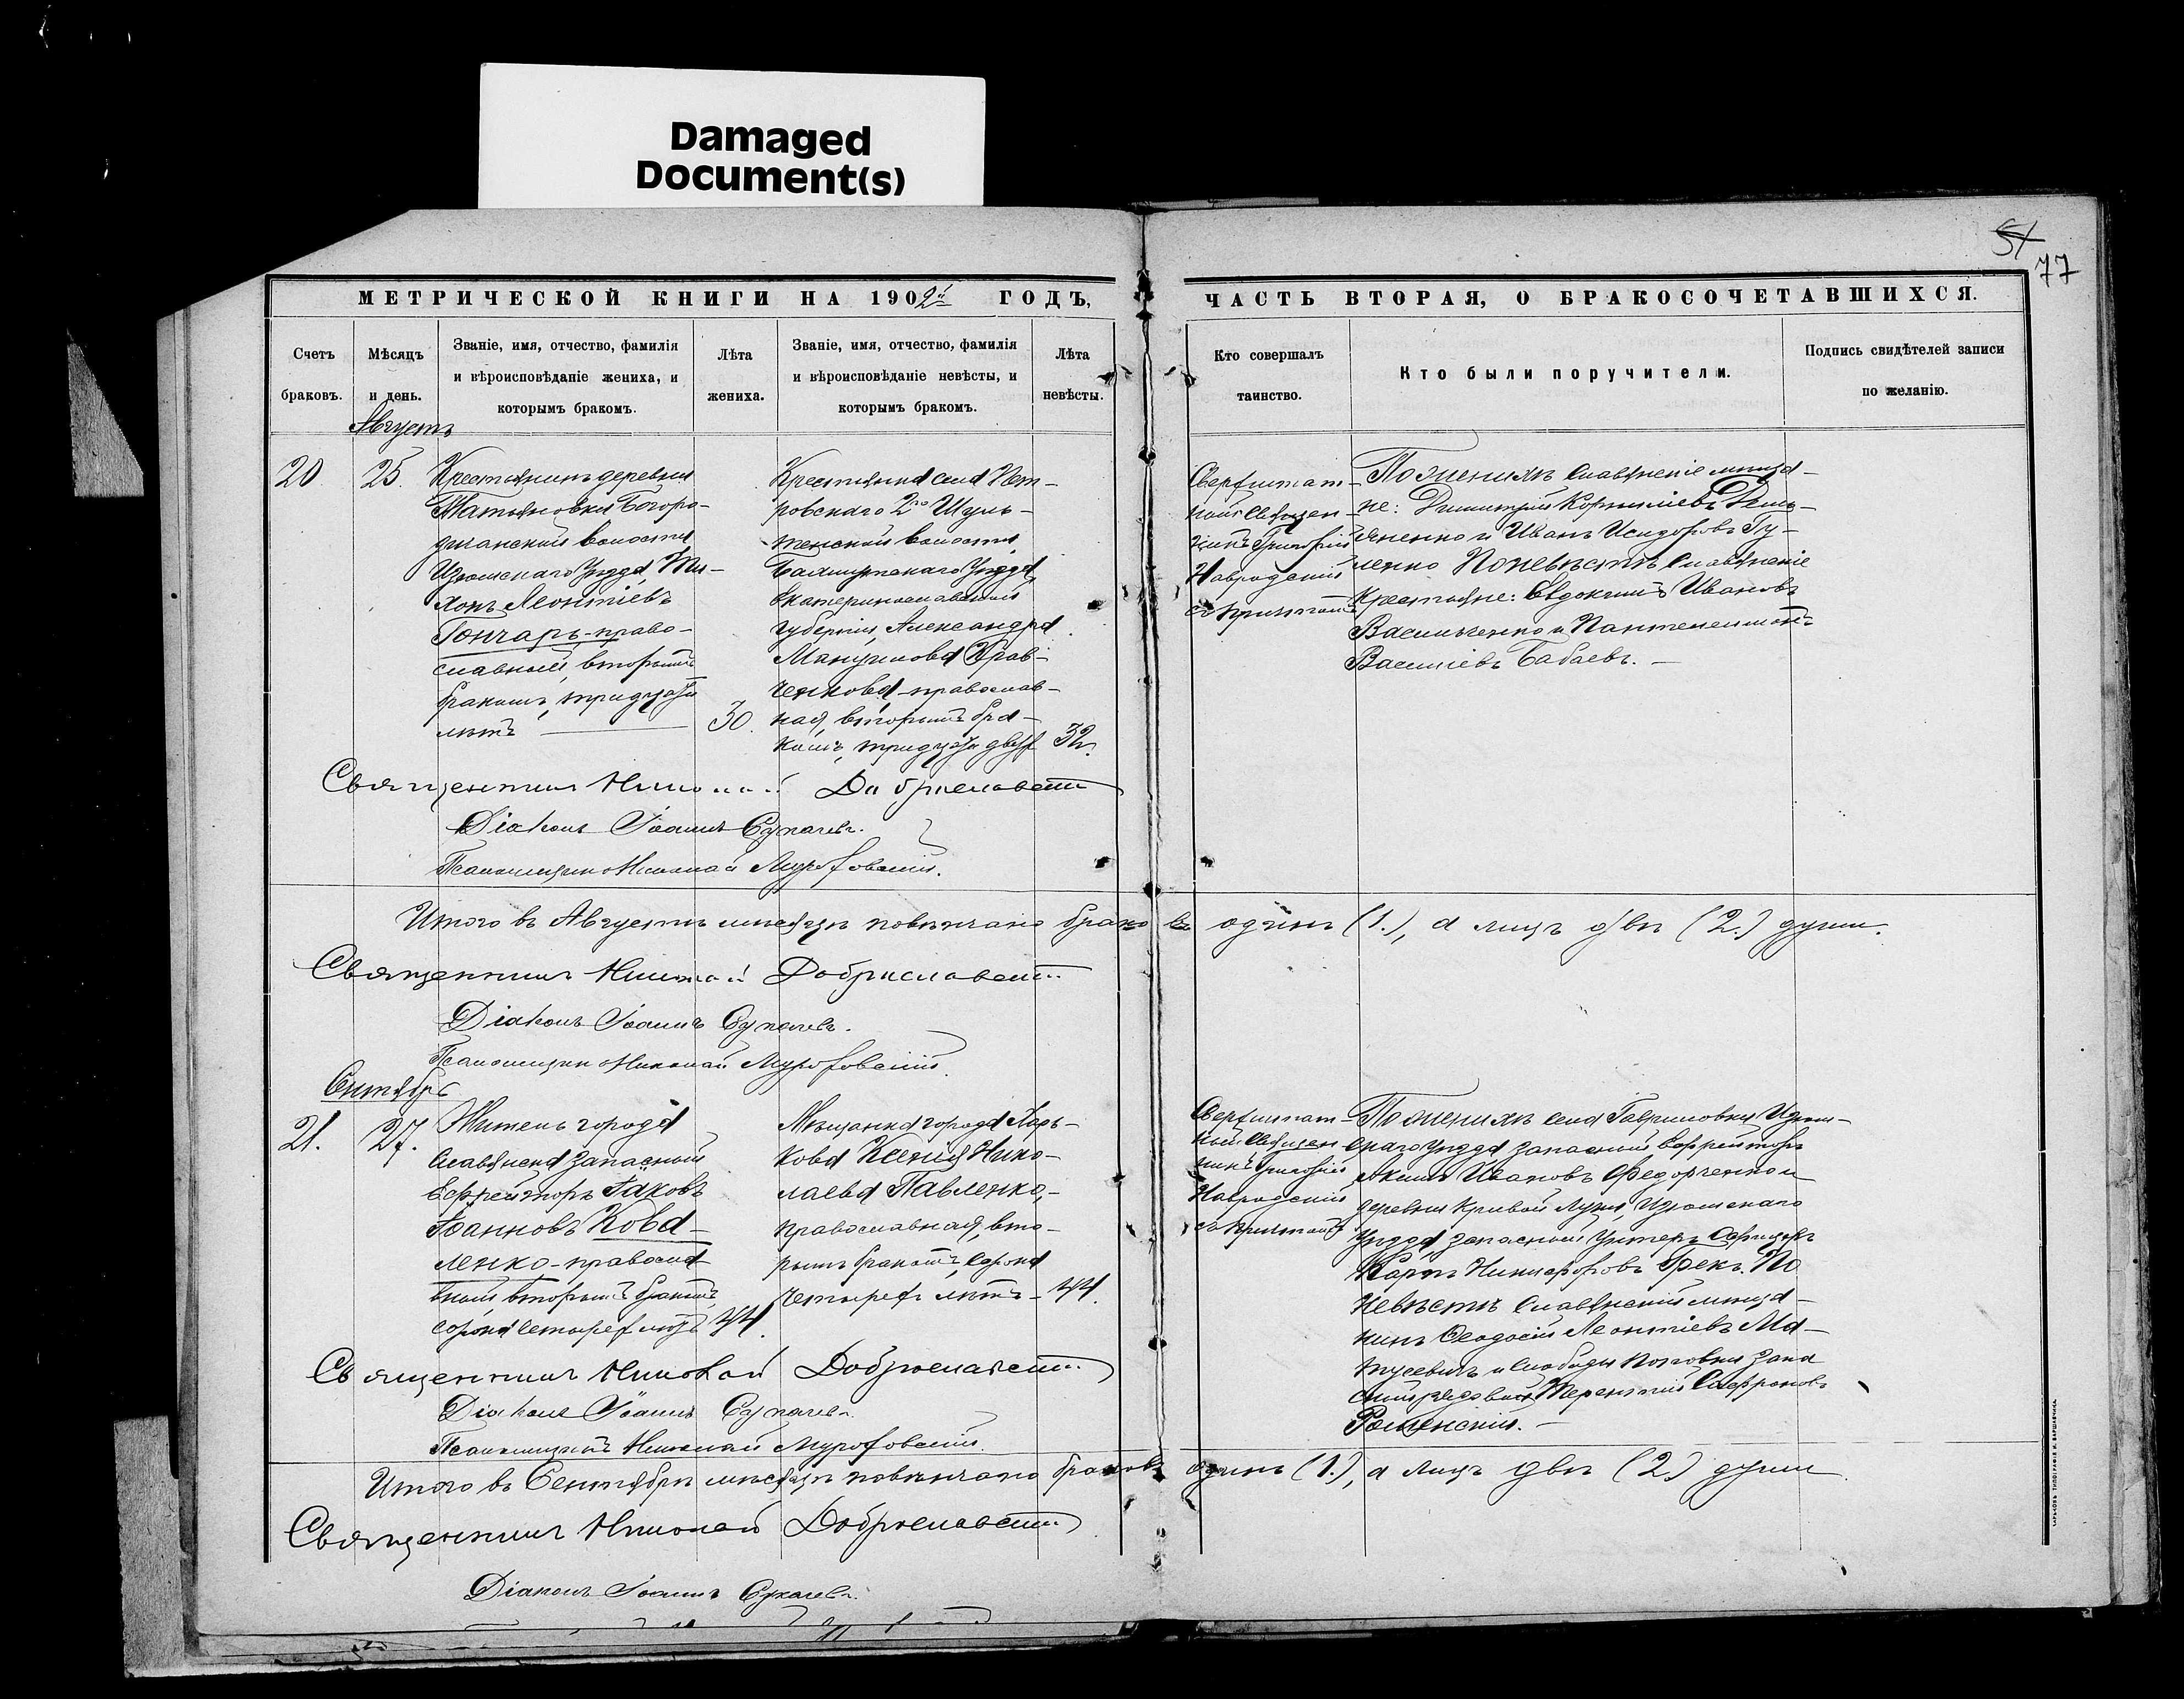 Damaged
Document(s)
51
77
МЕТРИЧЕСКОЙ КНИГИ НА 1909й ГОДЪ,
ЧАСТЬ ВТОРАЯ, О БРАКОСОЧЕТАВШИХСЯ.
Счетъ
браковъ.
Мѣсяцъ
и день.
Званіе, имя, отчество, фамилія
и вѣроисповѣданіе жениха, и
которымъ бракомъ.
Лѣта
жениха.
Званіе, имя, отчество, фамилія
и вѣроисповѣданіе невѣсты, и
которымъ бракомъ.
Лѣта
невѣсты.
Кто совершалъ
таинство.
Кто были поручители.
Подпись свидѣтелей записи
по желанію.
Августъ
20
25.
Крестьянинъ деревни
Татьяновки Богоро-
дичанской волости
Изюмскаго уѣзда, Ти-
хонъ Леонтіевъ
Гончаръ, - право-
славный, вторымъ
бракомъ, тридцати
лѣтъ
30.
Крестьянка села Пет-
ровскаго 2го Шуль-
тенской волости,
Бахмутскаго уѣзда,
Екатеринославской
губерніи, Александра
Мануилова Крав-
ченкова, - православ-
ная, вторымъ бра-
комъ, тридцати двухъ
32.
Сверхштат-
ный Священ-
никъ Григорій
Навродскій
съ причтомъ
По женихѣ Славянскіе мѣща-
не: Димитрій Корниліевъ Демь-
яненко и Иванъ Исидоровъ Гу-
ленко По невѣстѣ Славянскіе
Крестьяне: Евдокимъ Ивановъ
Васильченко и Пантелеимонъ
Василіевъ Бабаевъ. -
Священникъ Николай Доброславскій
Діаконъ Іоаннъ Сукачевъ.
Псаломщикъ Николай
Итого въ Августѣ мѣсяцѣ повѣнчано браковъ одинъ (1.), а лицъ двѣ (2.) души.
Священникъ Николай Доброславскій
Діаконъ Іоаннъ Сукачевъ.
Псаломщикъ Николай
Сентябрь
21.
27.
Житель города
Славянска запасный
Ефрейторъ Іаковъ
Іоанновъ Кова-
ленко, - правосла-
вный, вторымъ бракомъ,
сорока четырехъ лѣтъ
44.
Мѣщанка города Харь-
кова Ксенія Нико-
лаева Павленко, -
православная, вто-
рымъ бракомъ, сорока
четырехъ лѣтъ -
44.
Сверхштат-
ный Священ-
никъ Григорій
Навродскій
съ причтомъ
По женихѣ села Гавриловки Изюм-
скаго уѣзда запасный Ефрейторъ
Акимъ Ивановъ Федорченко и
деревни Кривой Луки, Изюмскаго
уѣзда запасный Унтеръ-Офицеръ
Карпъ Никифоровъ Грекъ. По
невѣстѣ Славянскій мѣща-
нинъ Феодосій Леонтіевъ Ма-
тусевичъ и Слободы запа
сный рядовой Терентій
Роменскій. -
Священникъ Николай Доброславскій
Діаконъ Іоаннъ Сукачевъ.
Псаломщикъ Николай
Итого въ Сентябрѣ мѣсяцѣ повѣнчано браковъ одинъ (1.), а лицъ двѣ (2.) души.
Священникъ Николай Доброславскій
Діаконъ Іоаннъ Сукачевъ.